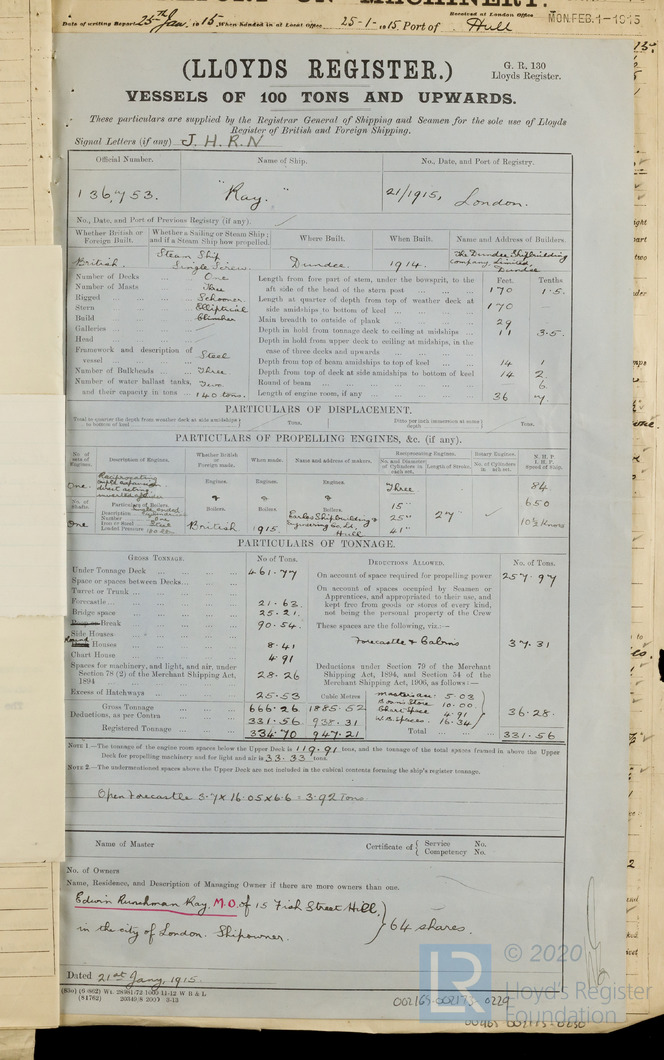 REPORT ON MACHINERY.
Date of writing Report 25th Jan. 1915. When handed in at Local Office 25-1-1915 Port of Hull
Received at London Office MON. FEB. 1-1915
(LLOYDS REGISTER.)
G. R. 130
Lloyds Register.
VESSELS OF 100 TONS AND UPWARDS.
These particulars are supplied by the Registrar General of Shipping and Seamen for the sole use of Lloyds
Register of British and Foreign Shipping.
Signal Letters (if any) J.H.R.N
Official Number. Name of Ship. No., Date, and Port of Registry.
136,753. "Ray." 21/1915, London.
No., Date, and Port of Previous Registry (if any).
Whether British or Foreign Built. Whether a Sailing or Steam Ship; and if a Steam Ship how propelled. Where Built. When Built. Name and Address of Builders.
British. Steam Ship Single Screw. Dundee. 1914. The Dundee Shipbuilding Company, Limited, Dundee
Number of Decks ... One
Number of Masts ... Three
Rigged ... Schooner
Stern ... Elliptical
Build ... Clincher
Galleries ...
Head ...
Framework and description of vessel ... Steel
Number of Bulkheads ... Three
Number of water ballast tanks, and their capacity in tons ... Two 140 tons.
Feet. Tenths
Length from fore part of stem, under the bowsprit, to the aft side of the head of the stern post ... 170 1.5.
Length at quarter of depth from top of weather deck at side amidships to bottom of keel ... 170
Main breadth to outside of plank ... 29
Depth in hold from tonnage deck to ceiling at midships ... 11 3.5.
Depth in hold from upper deck to ceiling at midships, in the case of three decks and upwards ...
Depth from top of beam amidships to top of keel ... 14 1
Depth from top of deck at side amidships to bottom of keel 14 2
Round of beam ... 6
Length of engine room, if any ... 36 7.
PARTICULARS OF DISPLACEMENT.
Total to quarter the depth from weather deck at side amidships to bottom of keel Tons. Ditto per inch immersion at same depth Tons.
PARTICULARS OF PROPELLING ENGINES, &c. (if any).
No. of sets of Engines. Description of Engines. Whether British or Foreign made. When made. Name and address of makers. Reciprocating Engines. Rotary Engines. N.H.P. I.H.P. Speed of Ship.
No. and Diameter of Cylinders in each set. Length of Stroke. No. of Cylinders in each set.
One. Reciprocating triple expansion direct acting inverted cylinder
Engines. Engines. Engines.
Three 84
No. of Shafts. Particulars of Boilers.
Boilers. Boilers. Boilers.
Description Single ended Cylindrical
Number One
Iron or Steel Steel
Loaded Pressure 180 lbs.
One British 1915. Earles Shipbuilding & Engineering Co. Ld. Hull
15" 25" 41" 27 650 10½ Knots
PARTICULARS OF TONNAGE.
Gross Tonnage. No of Tons. Deductions Allowed. No. of Tons.
Under Tonnage Deck ... 461.77
Space or spaces between Decks ...
Turret or Trunk ...
Forecastle ... 21.63.
Bridge space ... 25.21.
Poop or Break 90.54.
Side Houses ...
Round Houses ... 8.41
Chart House ... 4.91
Spaces for machinery, and light, and air, under Section 78 (2) of the Merchant Shipping Act, 1894 ... 28.26
Excess of Hatchways ... 25.53
Gross Tonnage 666.26 1885.52
Deductions, as per Contra ... 331.56. 938.31
Registered Tonnage ... 334.70 947.21
On account of space required for propelling power 257.97
On account of spaces occupied by Seamen or Apprentices, and appropriated to their use, and kept free from goods or stores of every kind, not being the personal property of the Crew
These spaces are the following, viz.:—
Forecastle & Cabins 37.31
Deductions under Section 79 of the Merchant Shipping Act, 1894, and Section 54 of the Merchant Shipping Act, 1906, as follows:—
Cubic Metres
Master's acc. 5.03
Boatsn's Store 10.00.
Chart Space 4.91
W.B. Spaces. 16.34
36.28.
Total ... 331.56
Note 1.—The tonnage of the engine room spaces below the Upper Deck is 119.91 tons, and the tonnage of the total spaces framed in above the Upper
Deck for propelling machinery and for light and air is 33.33 tons.
Note 2.—The undermentioned spaces above the Upper Deck are not included in the cubical contents forming the ship's register tonnage.
Open Forecastle 3.7 x 16.05 x 6.6 = 3.92 Tons
Name of Master Certificate of { Service No.
Competency No.
No. of Owners
Name, Residence, and Description of Managing Owner if there are more owners than one.
Edwin Runchman Ray, M.O. of 15 Fish Street Hill,
in the city of London. Shipowner. } 64 shares.
Dated 21st Jany, 1915.
(830) (6 862) Wt. 28981/72 1000 11-12 W B & L
(81762) 20349/8 2000 3-13
002165-002173-0229
002165-002173-0230
© 2020
LR
Lloyd's Register
Foundation